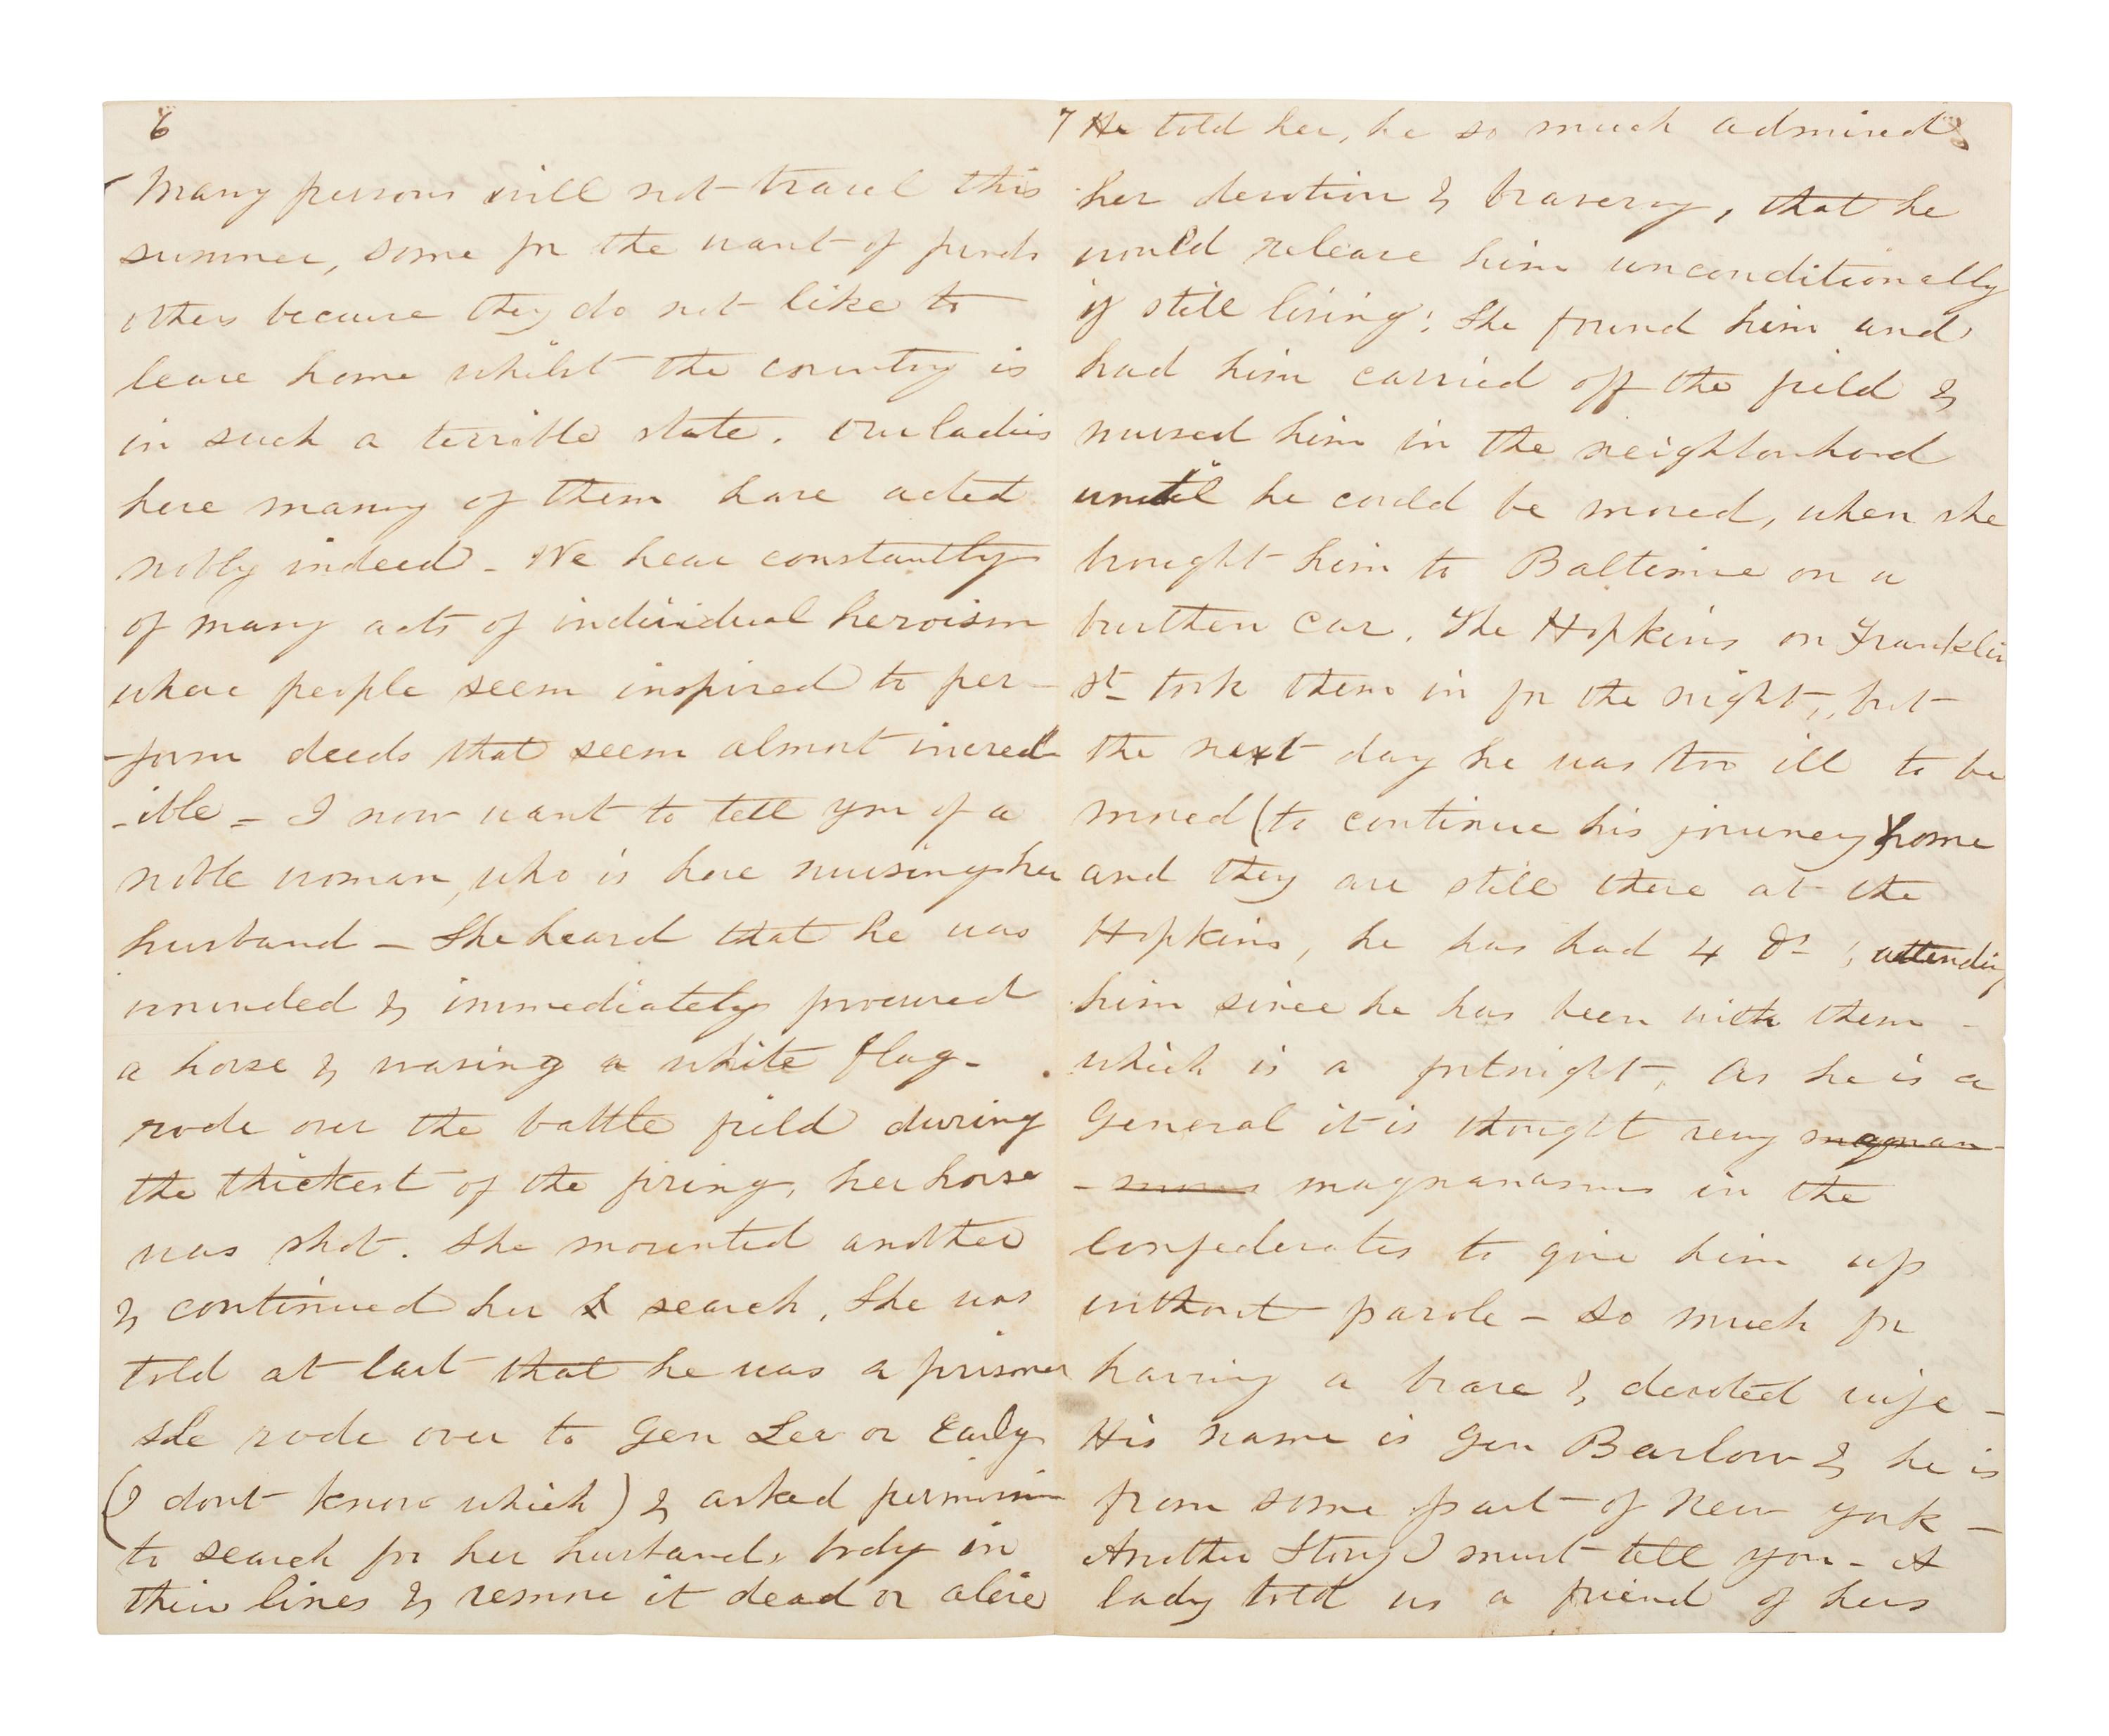 6
Many persons will not travel this
summer, some for the want of funds
others because they do not like to
leave home whilst the country is
in such a terrible state. Our ladies
here many of them have acted
nobly indeed - We hear constantly
of many acts of individual heroism
where people seem inspired to per-
-form deeds that seem almost incred-
-ible - I now want to tell you of a
noble woman, who is here nursing her
husband - She heard that he was
wounded & immediately procured
a horse & waving a white flag -
rode over the battle field during
the thickest of the firing, her horse
was shot. She mounted another
& continued her search. She was
told at last that he was a prisoner
she rode over to Gen Lee or Early
(I dont know which) & asked permission
to search for her husbands body in
their lines & remove it dead or alive
7 He told her, he so much admired
her devotion & bravery, that he
would release him unconditionally
if still living; She found him and
had him carried off the field &
nursed him in the neighborhood
until he could be moved, when she
brought him to Baltimore on a
burthen car. The Hopkins on Franklin
St took them in for the night, but
the next day he was too ill to be
moved (to continue his journey) home
and they are still there at the
Hopkins, he has had 4 Drs attending
him since he has been with them -
which is a fortnight. As he is a
General it is thought very magnan-
-mous magnanamus in the
Confederates to give him up
without parole - So much for
having a brave & devoted wife -
His name is Gen Barlow & he is
from some part of New York -
Another Story I must tell you - A
lady told us a friend of hers